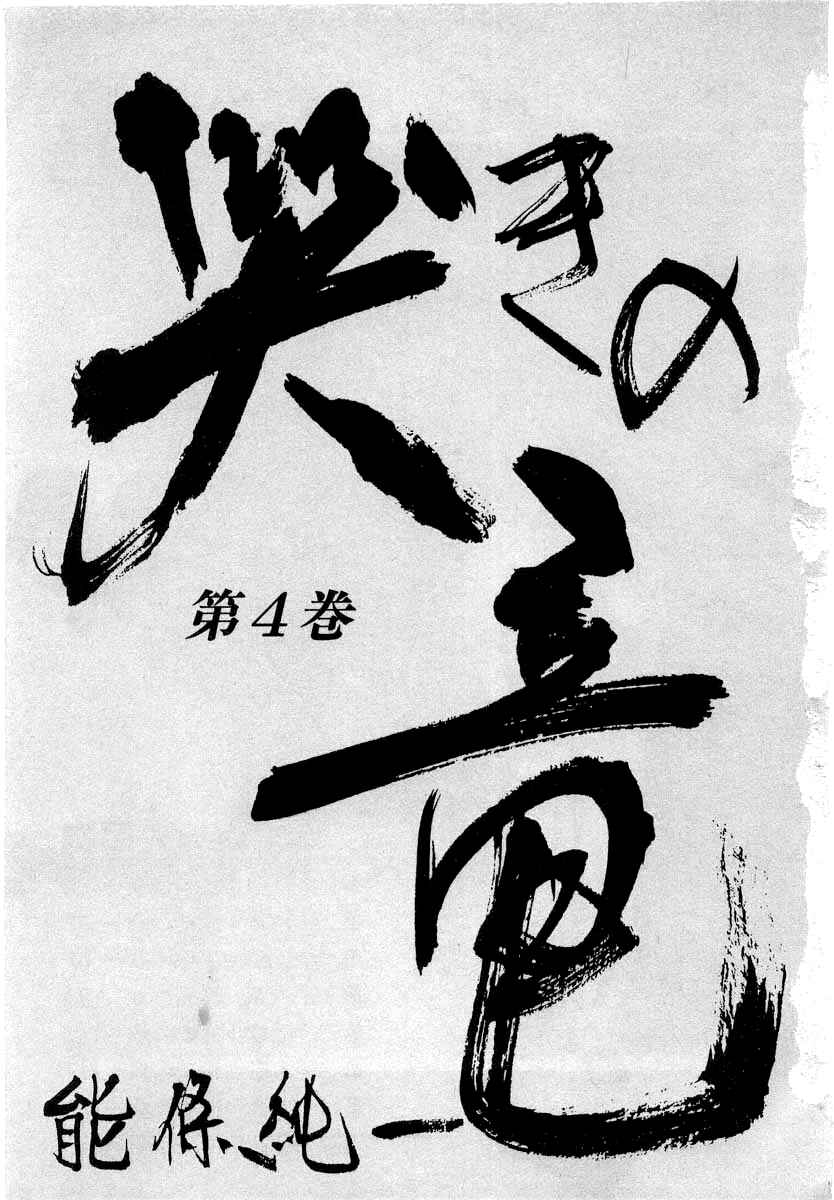 哭きの竜
第4巻
能條純一